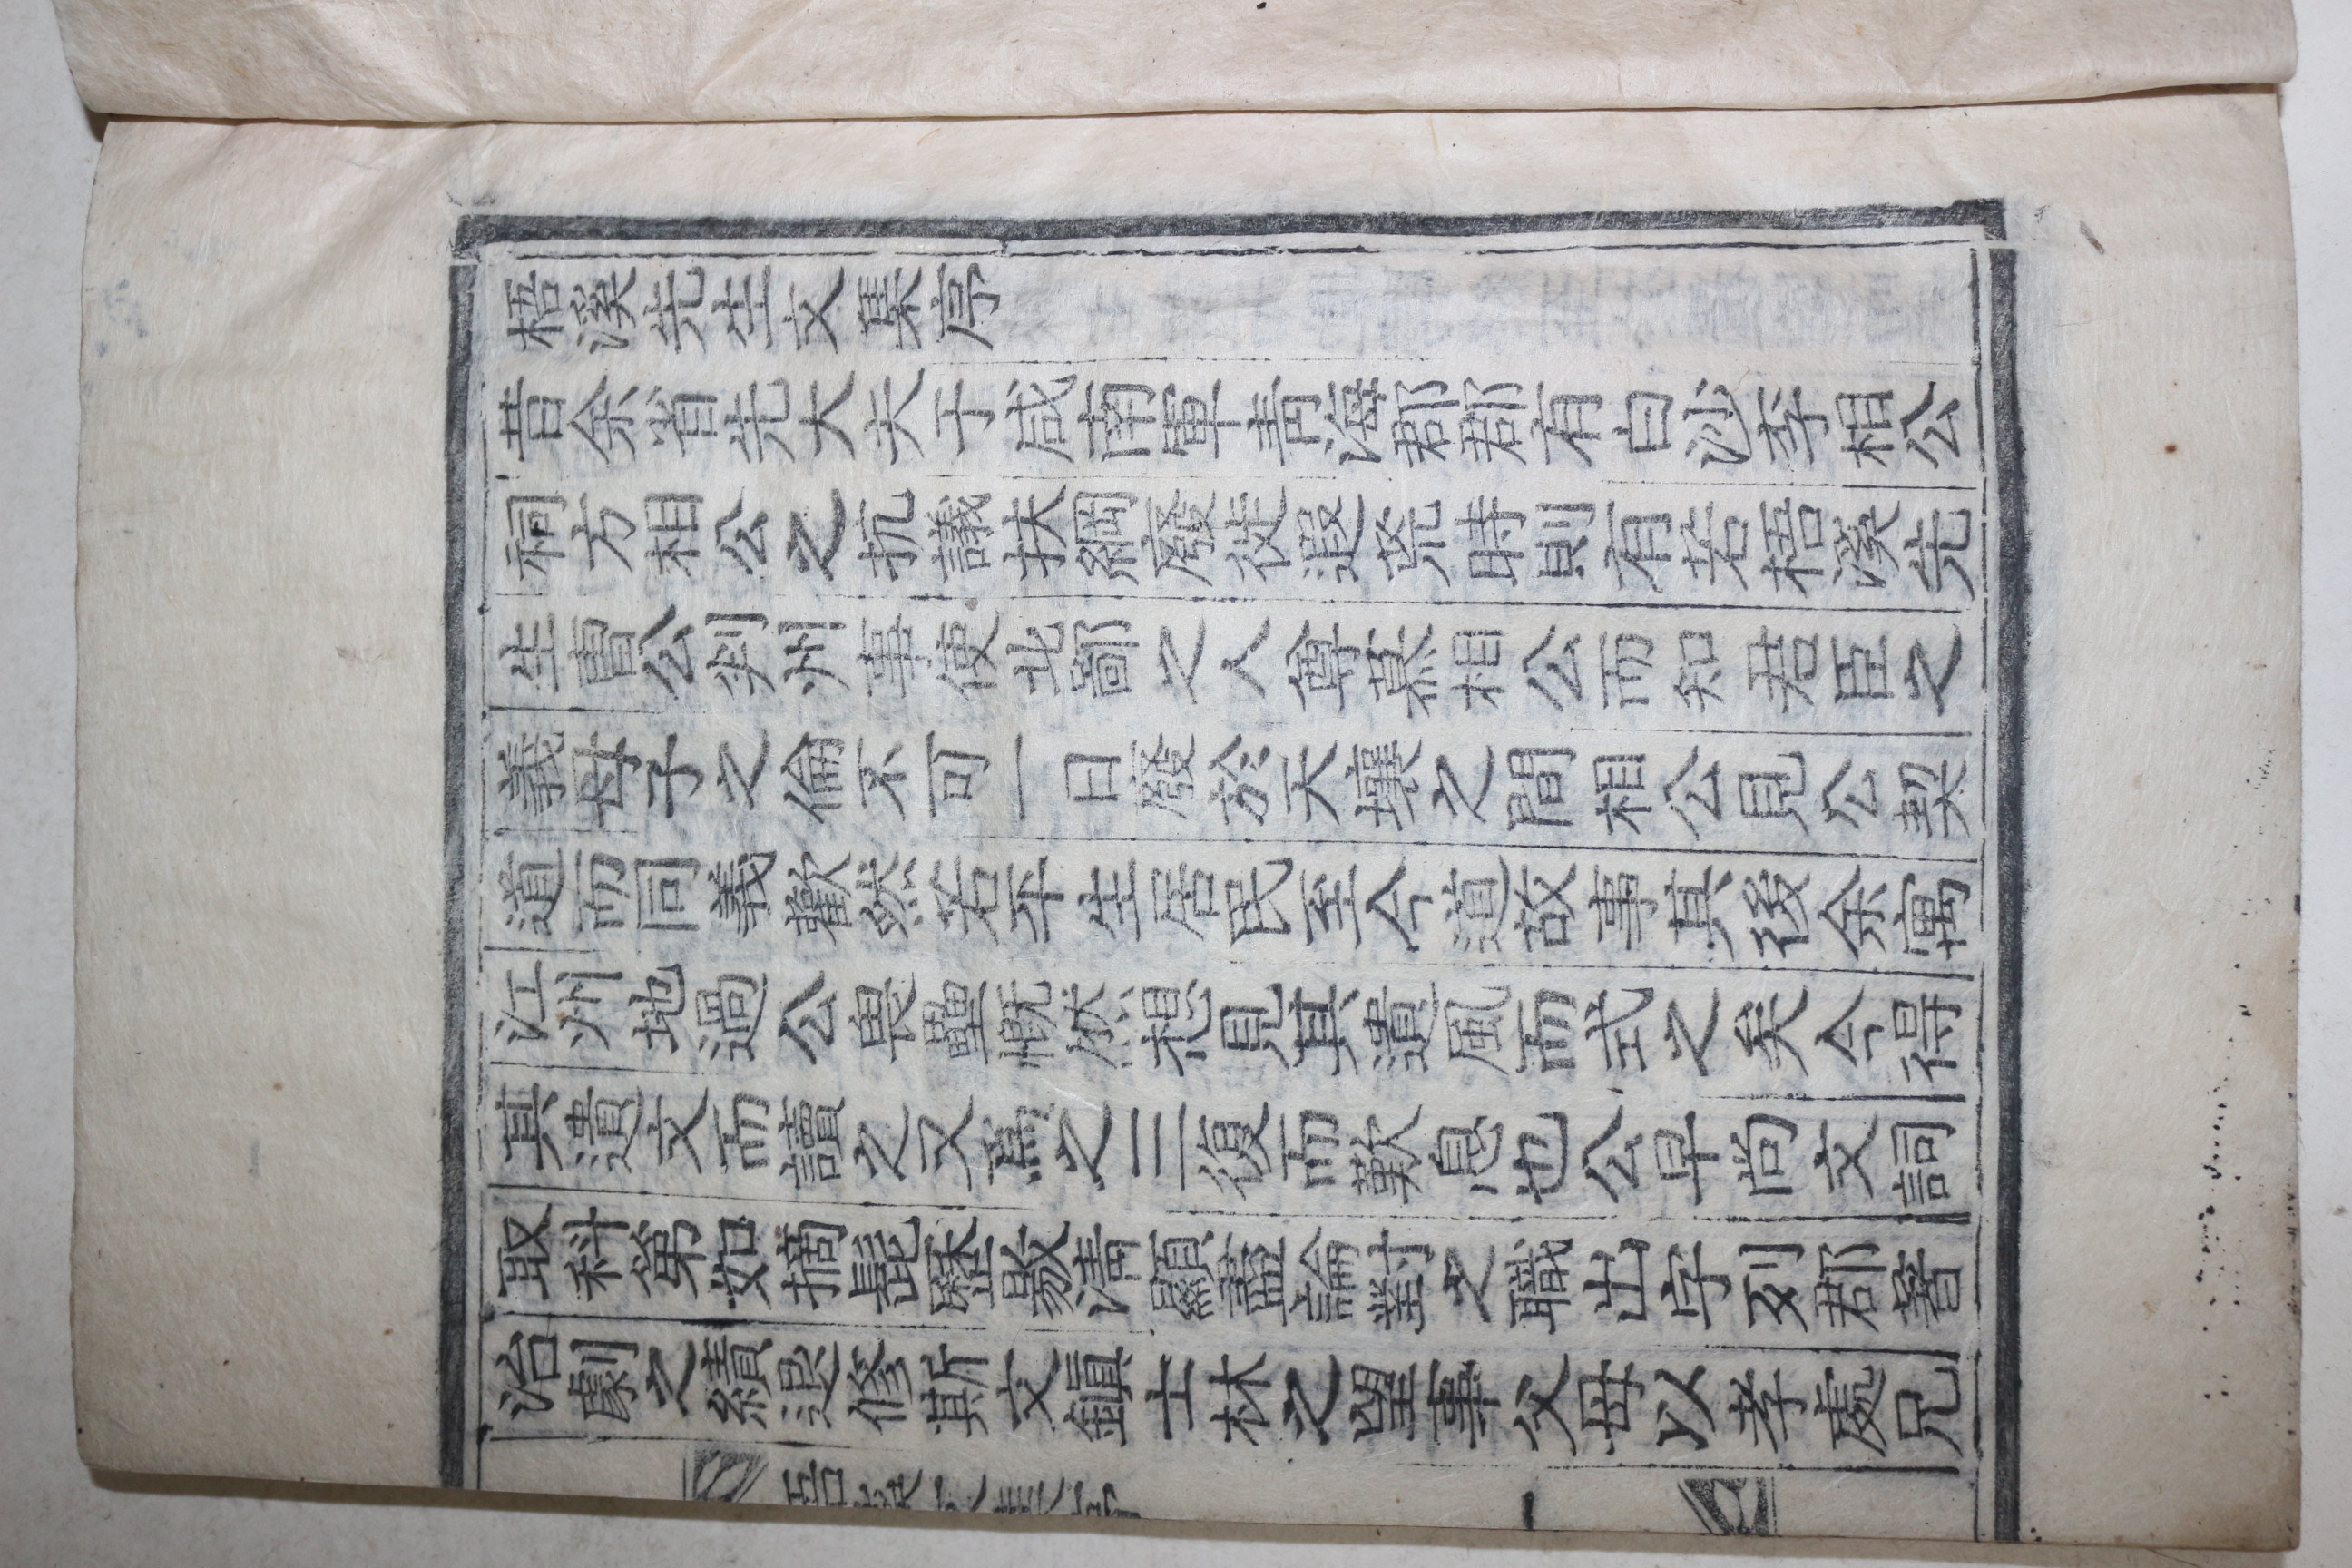 梧溪先生文集序
昔余省先大夫于咸南軍靑海郡郡有白沙李相公
祠方相公之抗議扶綱廢徙遐荒時則有若梧溪先
生曺公判州事使北鄙之人尊慕相公而知君臣之
義母子之倫不可一日廢於天壤之間相公見公契
道而同義歡然若平生居民至今道故事其後余寓
江州地過公畏壘慨然想見其遺風而式之矣今得
其遺文而讀之又爲之三復而歎息也公早尚文詞
取科第如摘髭歷敭淸顯盡論對之職出字列郡著
治劇之績退修斯文鎭士林之望事父母以孝處兄
梧溪文集序
一